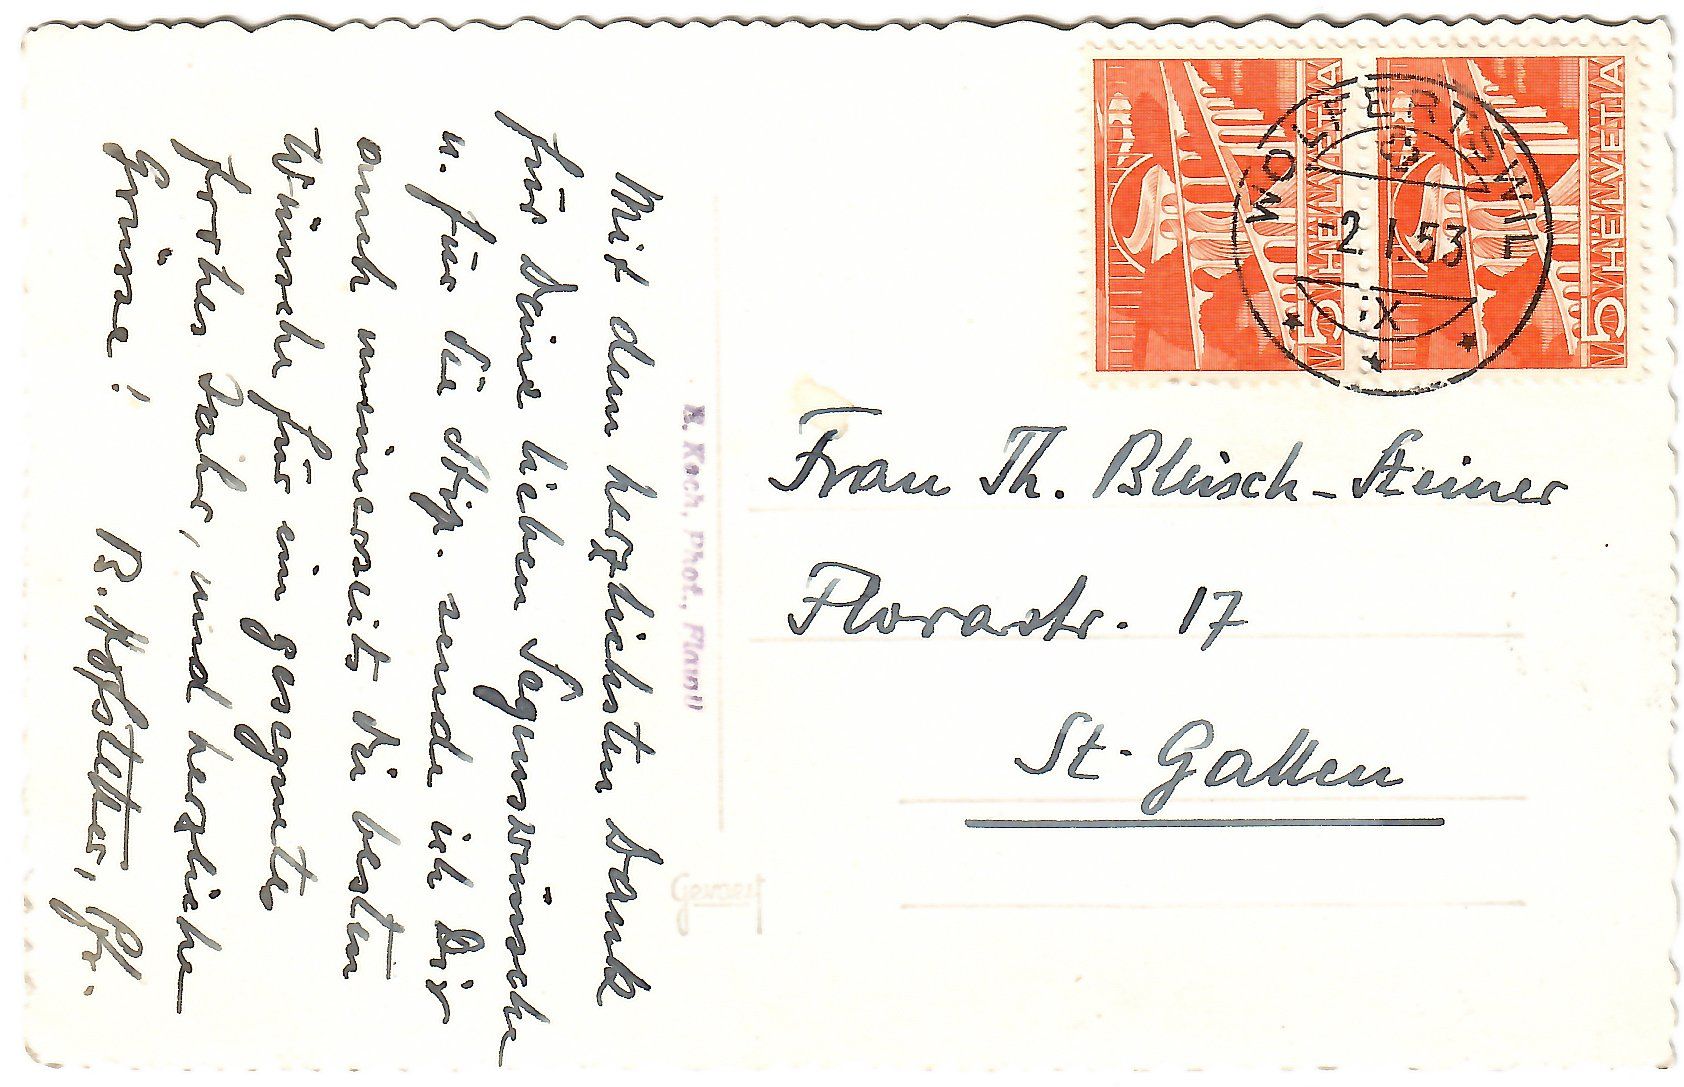 Mit dem herzlichsten Dank
für Deine lieben Segenswünsche
u. für die Stip. sende ich Dir
auch meinerseits die besten
Wünsche für ein gesegnetes
frohes Jahr, und herzliche
Grüsse!
B. Hofstetter, Pfr.
B. Koch, Phot., Flawil
Gevaert
HELVETIA
5
HELVETIA
5
WOLFERTSWIL
-2.I.53
IX
Frau Th. Bleisch-Steiner
Florastr. 17
St. Gallen